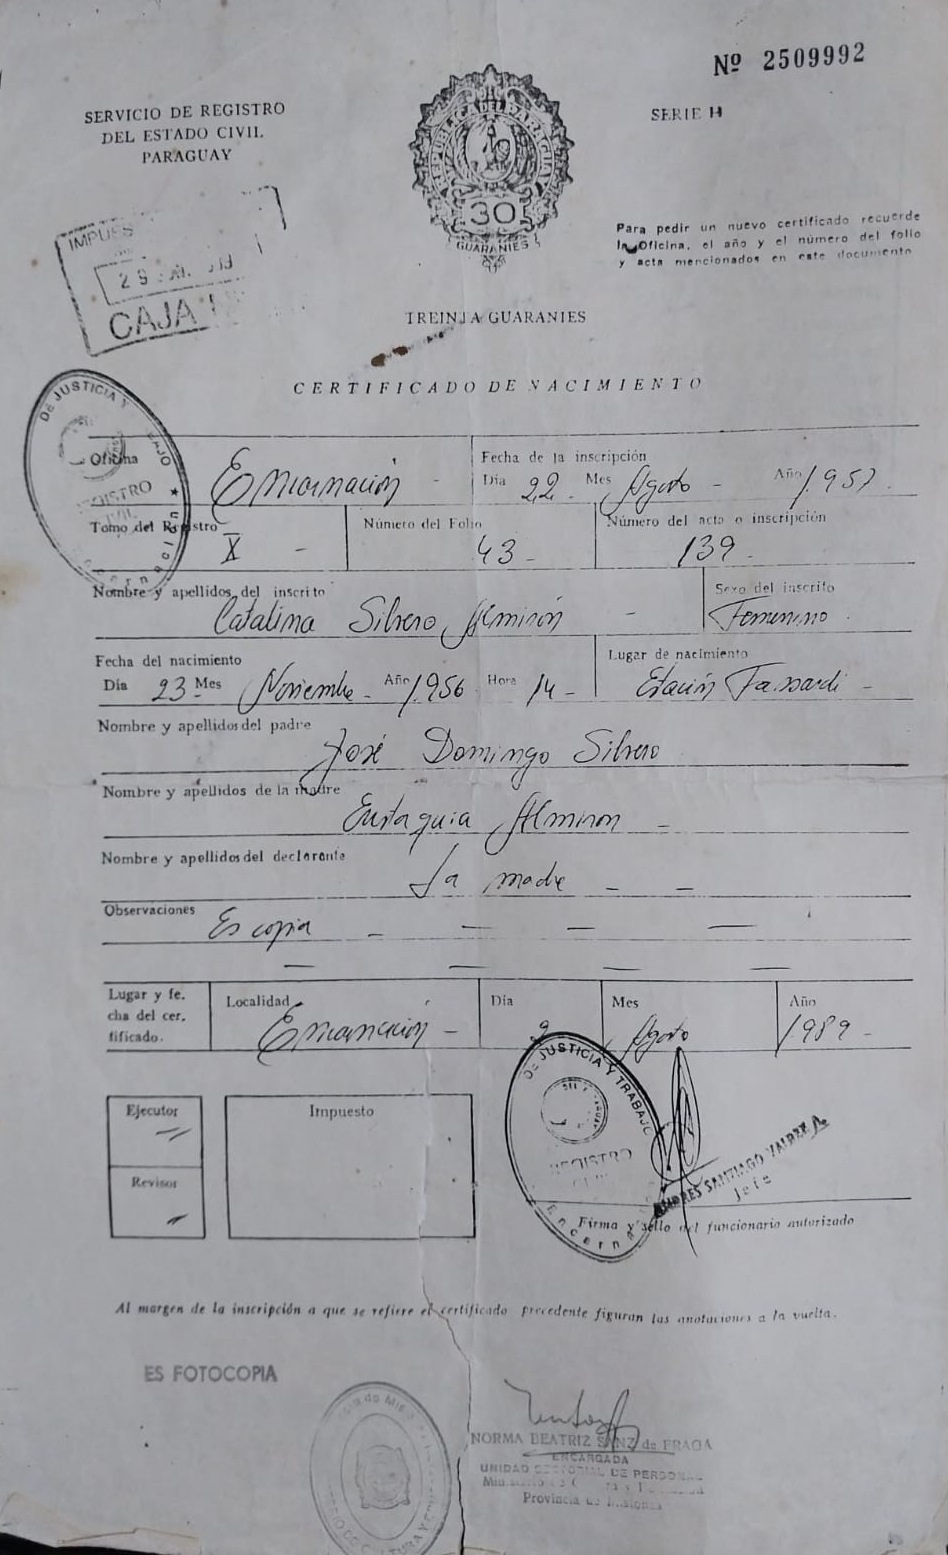 Nº 2509992
SERVICIO DE REGISTRO
DEL ESTADO CIVIL
PARAGUAY
SERIE H
REPUBLICA DEL PARAGUAY
30
GUARANIES
Para pedir un nuevo certificado recuerde
la Oficina, el año y el número del folio
y acta mencionados en este documento
CAJA
TREINTA GUARANIES
CERTIFICADO DE NACIMIENTO
DE JUSTICIA Y
REGISTRO
CIVIL
Oficina Encarnación -
Fecha de la inscripción
Día 22 - Mes Agosto - Año 1.957
Tomo del Registro X -
Número del Folio 43 -
Número del acta o inscripción 139 -
Nombre y apellidos del inscrito
Catalina Silvero Almirón -
Sexo del inscrito
Femenino
Fecha del nacimiento
Día 23 - Mes Noviembre - Año 1.956 Hora 14 -
Lugar de nacimiento
Estación Fassardi -
Nombre y apellidos del padre
José Domingo Silvero
Nombre y apellidos de la madre
Eustaquia Almiron -
Nombre y apellidos del declarante
La madre - -
Observaciones Es copia - - - -
- - - -
Lugar y fe.
cha del cer.
tificado.
Localidad
Encarnación -
Día
9
Mes
Agosto
Año
1989 -
Ejecutor
Revisor
Impuesto
DE JUSTICIA Y TRABAJO
REGISTRO
ANDRES SANTIAGO VALDEZ A.
Jefe
Firma y sello del funcionario autorizado
Al margen de la inscripción a que se refiere el certificado precedente figuran las anotaciones a la vuelta.
ES FOTOCOPIA
NORMA BEATRIZ SANZ de FRAGA
ENCARGADA
UNIDAD SECTORIAL DE PERSONAL
Provincia de Misiones